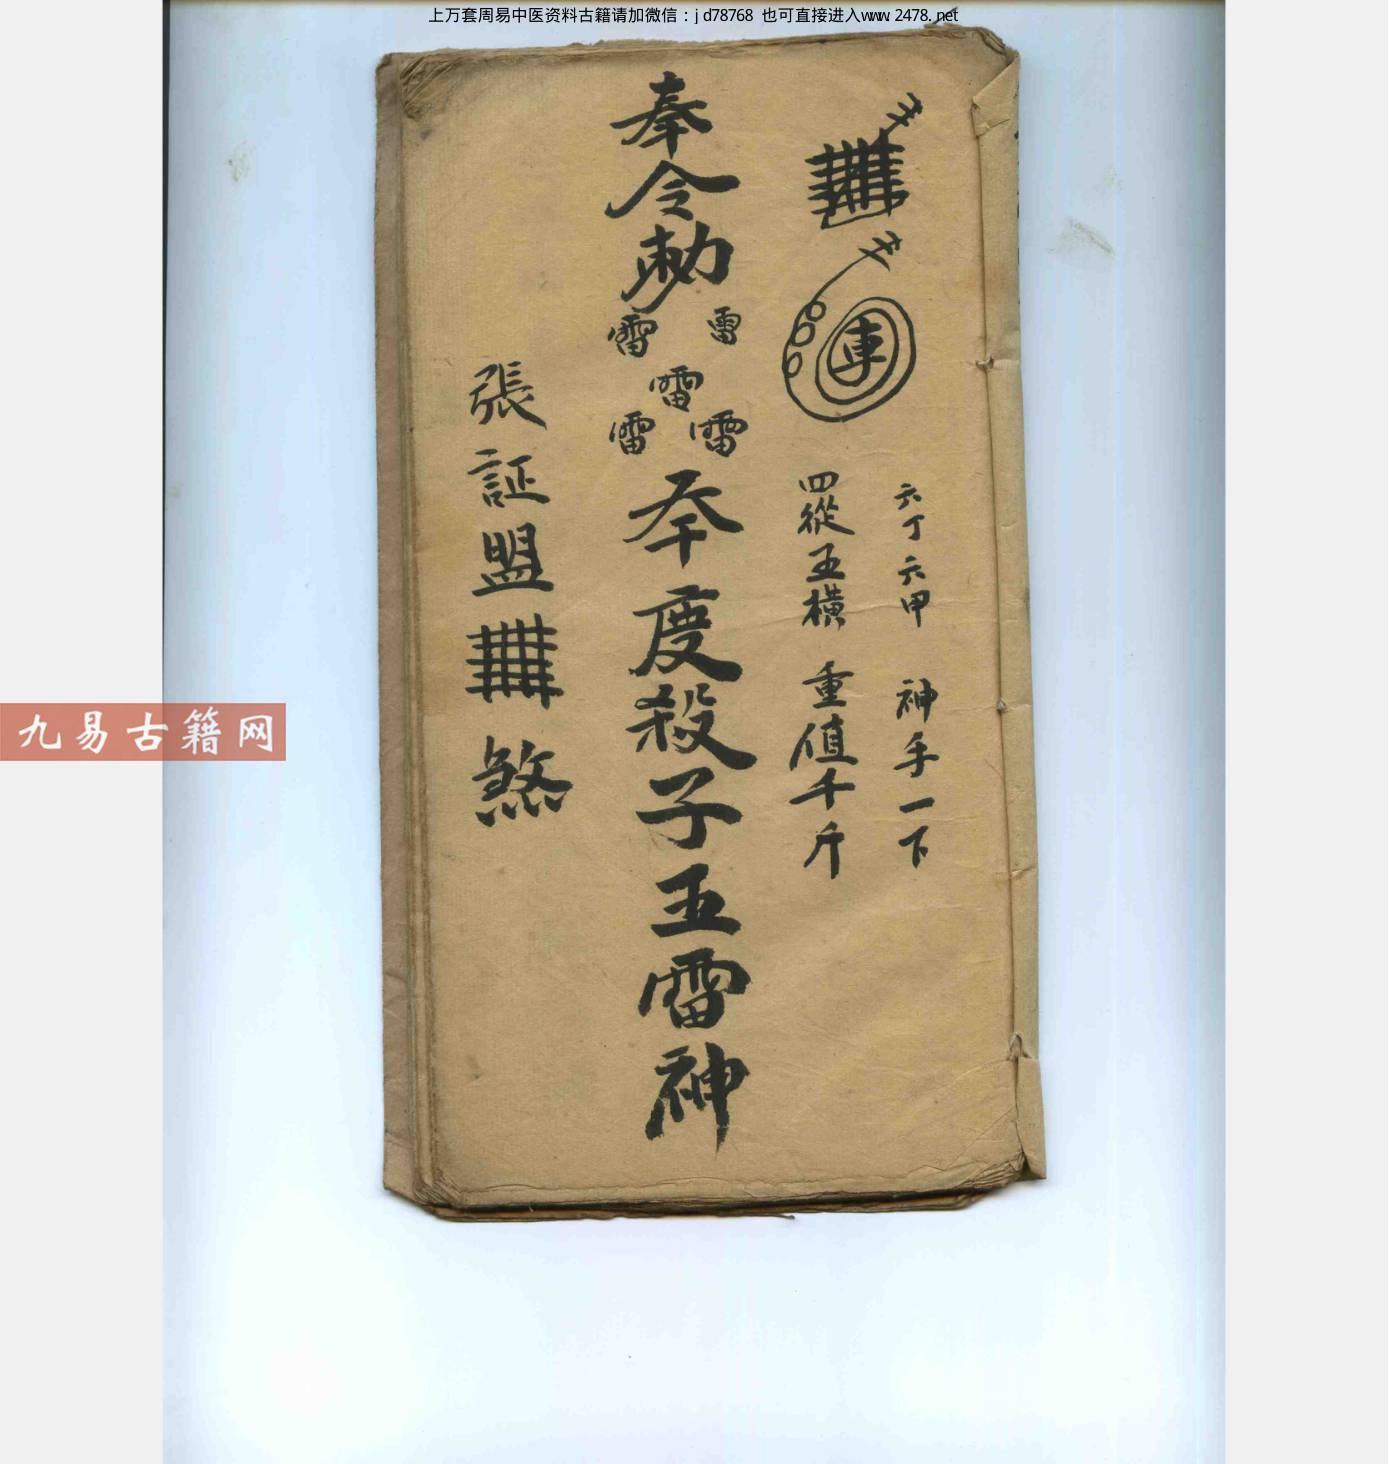 上万套周易中医资料古籍请加微信：jd78768 也可直接进入www.2478.net
六丁六甲 神手一下
四從五橫 重值千斤
車
奉令勅
雷 雷
雷
雷 雷
夲度殺子五雷神
張証盟 煞
九易古籍网